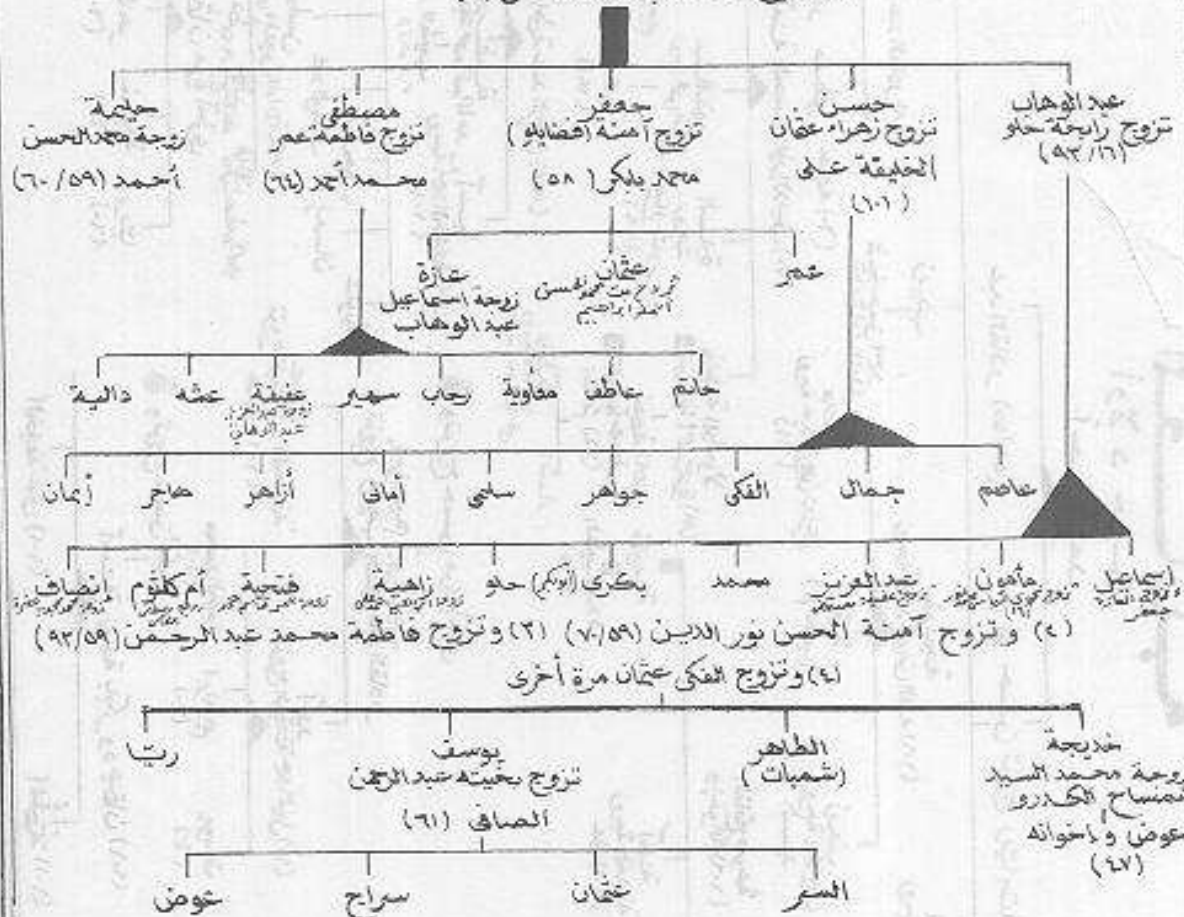 عبد الوهاب
تزوج رابحة حلو
(٩٣/١٦)
حسن
تزوج زهراء عثمان
الخليفة على
(١٠١)
جعفر
تزوج آمنة (افضايلو)
محمد بابكر (٥٨)
مصطفى
تزوج فاطمة عمر
محمد أحمد (٦٤)
حليمة
زوجة محمد الحسن
أحمد (٦٠/٥٩)
عمر
عثمان
عازة
زوجة اسماعيل
عبد الوهاب
حاتم
عاطف
معاوية
رحاب
سهير
عفيفة
عشه
دالية
عاصم
جمال
الفكى
جواهر
سلمى
أمانى
أزاهر
هاجر
إيمان
إسماعيل
جعفر
مأمون
عبد العزيز
محمد
بكرى (أبوبكر)
حلو
زاهية
فتحية
أم كلثوم
إنصاف
(٤) وتزوج آمنة الحسن نور الدين (٧٠/٥٩) (٣) وتزوج فاطمة محمد عبد الرحمن (٩٣/٥٩)
(٤) وتزوج الفكى عثمان مرة أخرى
خديجة
زوجة محمد السيد
تمساح الكدرو
عوض وإخوانه
(٤٧)
الطاهر
(شمبات)
يوسف
تزوج بخيته عبد الرحمن
الصافى (٦١)
ريتا
السر
عثمان
سراج
عوض